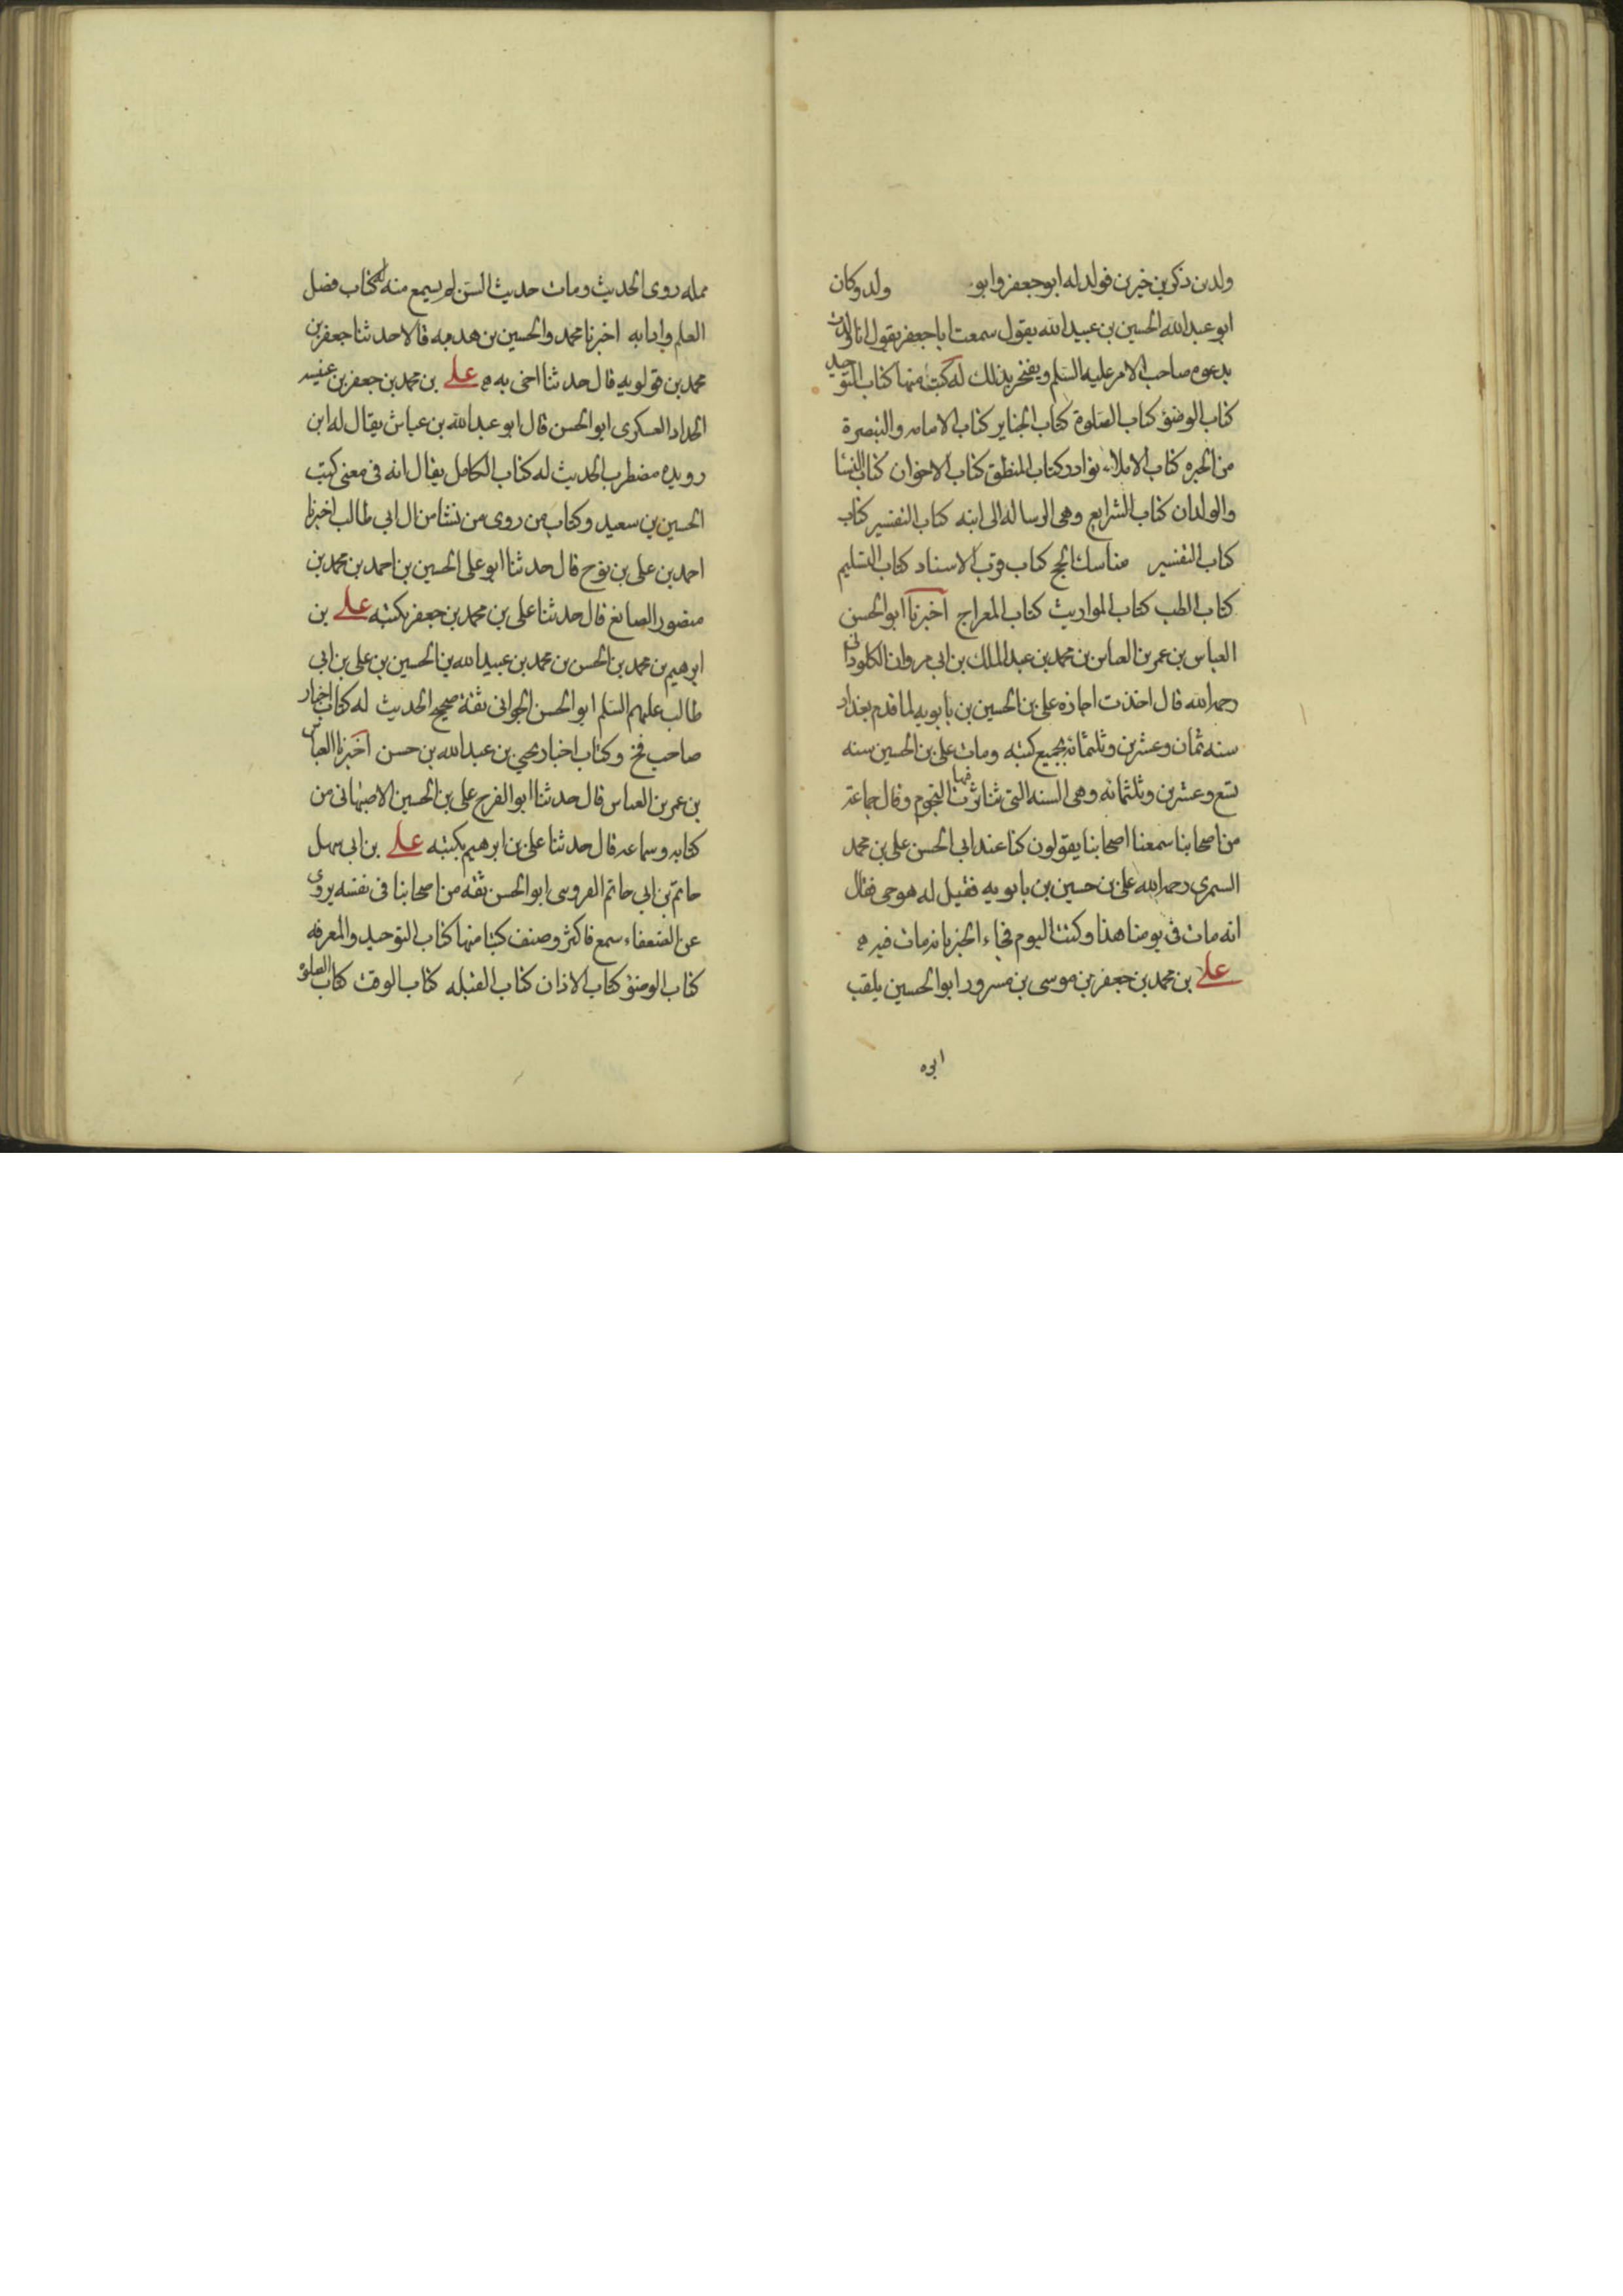 ولدين ذكرين خيرين فولد له ابو جعفر وابو ولد وكان
ابو عبد الله الحسين بن عبيد الله يقول سمعت ابا جعفر يقول انا ولدت
بدعوه صاحب الامر عليه السلم ويفتخر بذلك له كتب منها كتاب التوحيد
كتاب الوضوء كتاب الصلوة كتاب الجنايز كتاب الامامه والتبصرة
من الحيره كتاب الاملاء نوادر كتاب المنطق كتاب الاخوان كتاب النسا
والولدان كتاب الشرايع وهى الرساله الى ابنه كتاب التفسير كتاب
كتاب التفسير مناسك الحج كتاب قرب الاسناد كتاب التسليم
كتاب الطب كتاب المواريث كتاب المعراج اخبرنا ابو الحسن
العباس بن عمر بن العباس بن محمد بن عبد الملك بن ابى مروان الكلوذانى
رحمه الله قال اخذت اجازه على بن الحسين بن بابويه لما قدم بغداد
سنه ثمان وعشرين وثلثمائه بجميع كتبه ومات على بن الحسين سنه
تسع وعشرين وثلثمائه وهى السنه التى تناثرت فيها النجوم وقال جماعة
من اصحابنا سمعنا اصحابنا يقولون كنا عند ابى الحسن على بن محمد
السمرى رحمه الله على بن حسين بن بابويه فقيل له هو حى فقال
انه مات فى يومنا هذا وكتب اليوم فجاء الخبر بانه مات فيه ه
على بن محمد بن جعفر بن موسى بن مسرور ابو الحسين يلقب
ابوه
ممله روى الحديث ومات حديث السن لم يسمع منه له كتاب فضل
العلم وادابه اخبرنا محمد والحسين بن هدبه قالا حدثنا جعفر بن
محمد بن قولويه قال حدثنا اخى به ه على بن محمد بن جعفر بن عنبسه
الحداد العسكرى ابو الحسن قال ابو عبد الله بن عياش يقال له ابن
رويده مضطرب الحديث له كتاب الكامل يقال انه فى معنى كتب
الحسين بن سعيد وكتاب من روى من نشا من ال ابى طالب اخبرنا
احمد بن على بن نوح قال حدثنا ابو على الحسين بن احمد بن محمد بن
منصور الصائغ قال حدثنا على بن محمد بن جعفر بكتبه على بن
ابرهيم بن محمد بن الحسن بن محمد بن عبيد الله بن الحسين بن على بن ابى
طالب عليهم السلم ابو الحسن الجوانى ثقة صحيح الحديث له كتاب اخبار
صاحب فخ وكتاب اخبار يحيى بن عبد الله بن حسن اخبرنا العباس
بن عمر بن العباس قال حدثنا ابو الفرج على بن الحسين الاصبهانى من
كتابه وسماعه قال حدثنا على بن ابرهيم بكتبه على بن ابى سهل
حاتم بن ابى حاتم القزوينى ابو الحسن ثقه من اصحابنا فى نفسه يروى
عن الضعفاء سمع فاكثر وصنف كتبا منها كتاب التوحيد والمعرفه
كتاب الوضوء كتاب الاذان كتاب القبله كتاب الوقت كتاب الصلوة